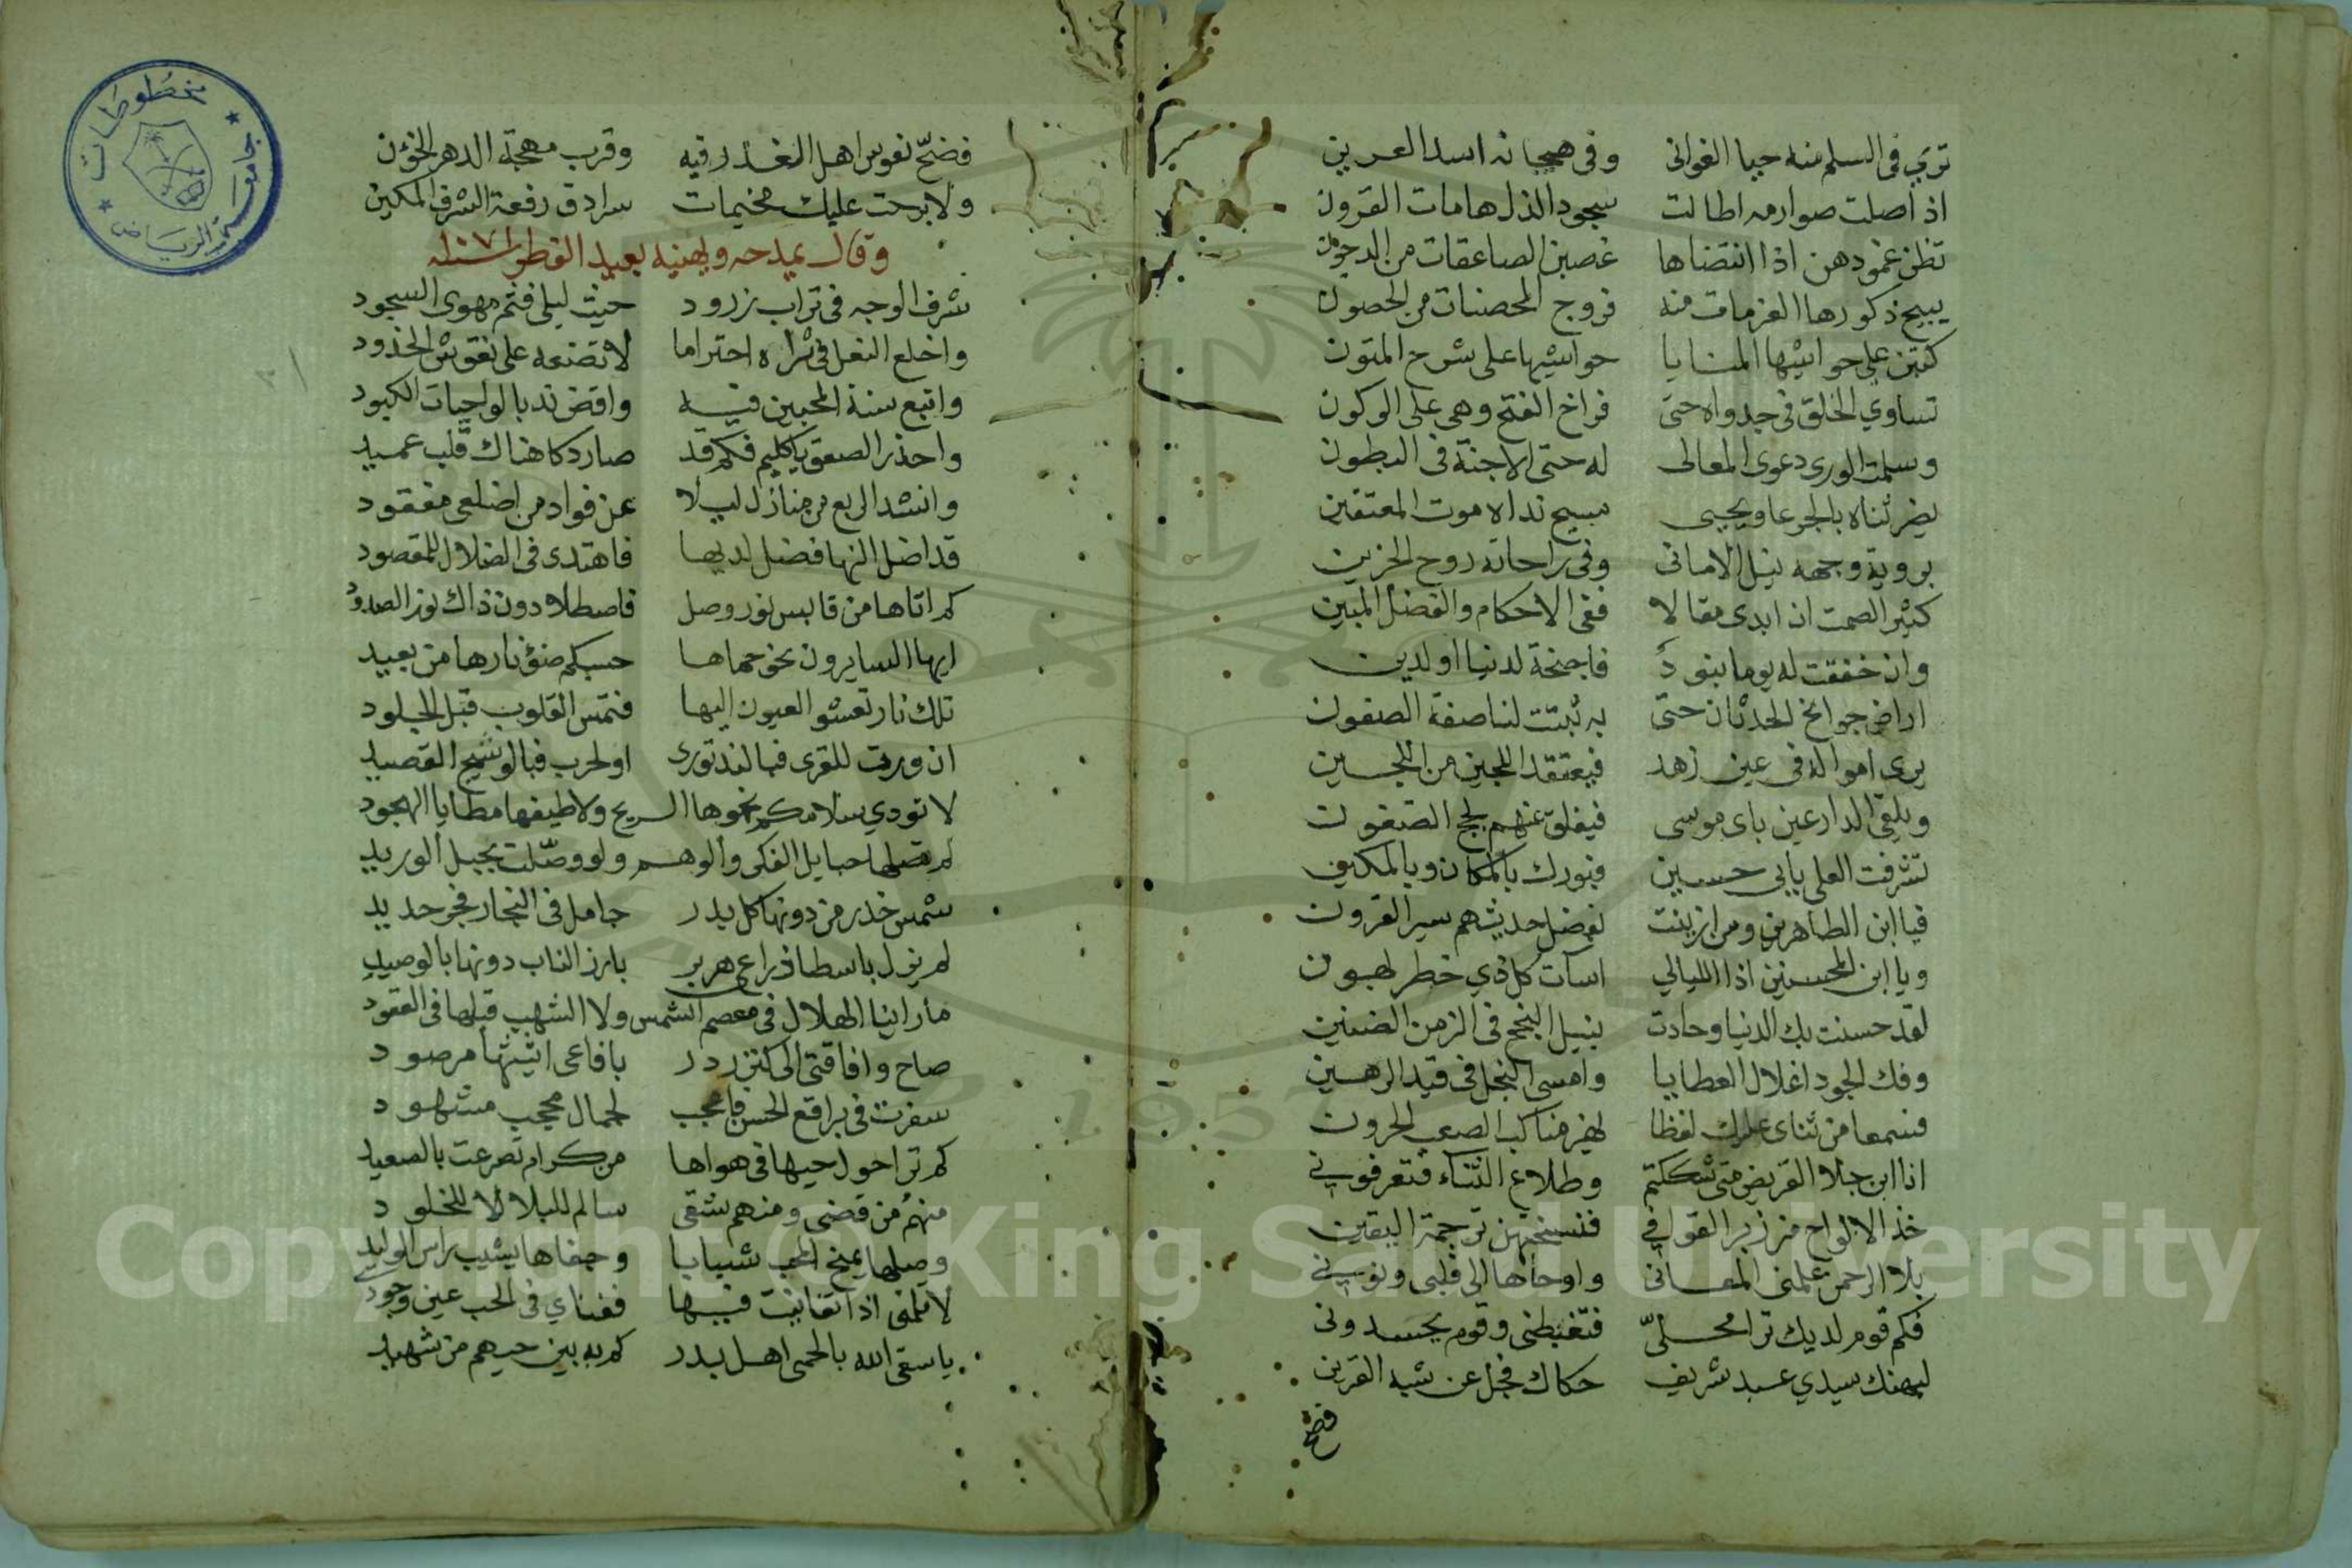 ترى في السلم منه حيا الغواني وفي هيجائه اسد العرين
اذا اصلت صوارمه اطالت سجود الذل هامات القرون
تظن غمودهن اذا انتضاها غصبن الصاعقات من الدجون
يبيح ذكورها العزمات منه فروج المحصنات من الحصون
كتبن على حواشيها المنايا حواشيها على شرح المتون
تساوي الخلق في جدواه حتى فراخ الفتح وهي على الوكون
وسلمت الورى دعوى المعالى له حتى الاجنة في البطون
يضر ثناه بالجرعا ويحيى مسيح نداه موت المعتفين
بروية وجهه نيل الاماني وفي راحاته روح الحزين
كثير الصمت ان ابدى مقالا ففي الاحكام والفضل المبين
وان خفقت له يوما بنود فاجنحة لدنيا او لدين
اراض جوانح الحدثان حتى به ثبتت لنا صفة الصفون
يرى امواله في عين زهد فيعتقد اللجين من اللجين
ويلقى الدارعين باى موسى فيفلق عنهم لجج الصفون
تشرفت العلى بابى حسين فبورك بالمكان وبالمكين
فيا ابن الطاهرين ومن ازينت لفضل حديثهم سير القرون
ويا ابن المحسنين اذا الليالي اسأت كل ذي خطر لهون
لقد حسنت بك الدنيا وجادت بنيل النجح في الزمن الضنين
وفك الجود اغلال العطايا وامسى البخل في قيد الرهين
فسمعا من ثناى عليك لفظا يهز مناكب الصعب الحرون
انا ابن جلا القريض متى شككتم وطلاع الثناء فتعرفوني
خذ الالواح من زبر القوافي فنسختهن ترجمة اليقين
بلا الرحمن علمنى المعانى واوحاها الى قلبى ونوني
فكم قوم لديك ترا محلى فتغبطنى وقوم يحسدونى
ليهنك سيدي عيد شريف حكاك فجل عن شبه القرين
فضح
فضح نفوس اهل الغدر فيه وقرب مهجة الدهر الخؤن
ولا برحت عليك مخيمات سرادق رفعة الشرف المكين
وقال يمدحه ويهنيه بعيد الفطر
شرف الوجه في تراب زرود حيث ليلى فثم مهوى السجود
واخلع النعل في ثراه احتراما لا تضعه على نقوش الخدود
واتبع سنة المحبين فيه واقض ندبا لواجبات الكبود
واحذر الصعق يا كليم فكم قد صار دكا هناك قلب عميد
وانشد الربع من منازل ليلا عن فواد من اضلعى مفقود
قد اضل النها فضل لديها فاهتدى في الضلال للمقصود
كم اتاها من قابس نور وصل فاصطلا دون ذاك نار الصدود
ايها السايرون نحو حماها حسبكم ضوء نارها من بعيد
تلك نار تعشو العيون اليها فتمس القلوب قبل الجلود
ان ورت للقرى فبا لند تورى او لحرب فبالوشيج القصيد
لا تودي سلامكم نحوها الريح ولا طيفها مطايا الهجود
لم تصلها حبايل الفكر والوهم ولو وصلت بحبل الوريد
شمس خدر من دونها كل بدر حامل في النجار فجر حديد
لم يزل باسطا ذراعى هزبر بارز الناب دونها بالوصيد
ما راينا الهلال في معصم الشمس ولا الشهب قبلها في العقود
صاح وا فاقتى الى كنز در بافاعى اثيثها مرصود
سفرت في براقع الحسن فاعجب لجمال محجب مشهود
كم ترا حول حيها في هواها من كرام تصرعت بالصعيد
منهم من قضى ومنهم شقى سالم للبلا لا للخلود
وصلها يمنح المحب شبابا وجفاها يشيب راس الوليد
لا تلمنى اذا تفانيت فيها ففناي في الحب عين وجود
يا سقى الله بالحمى اهل بدر كم به بين حيهم من شهيد
مخطوطات
جامعة الرياض
Copyright © King Saud University
1957